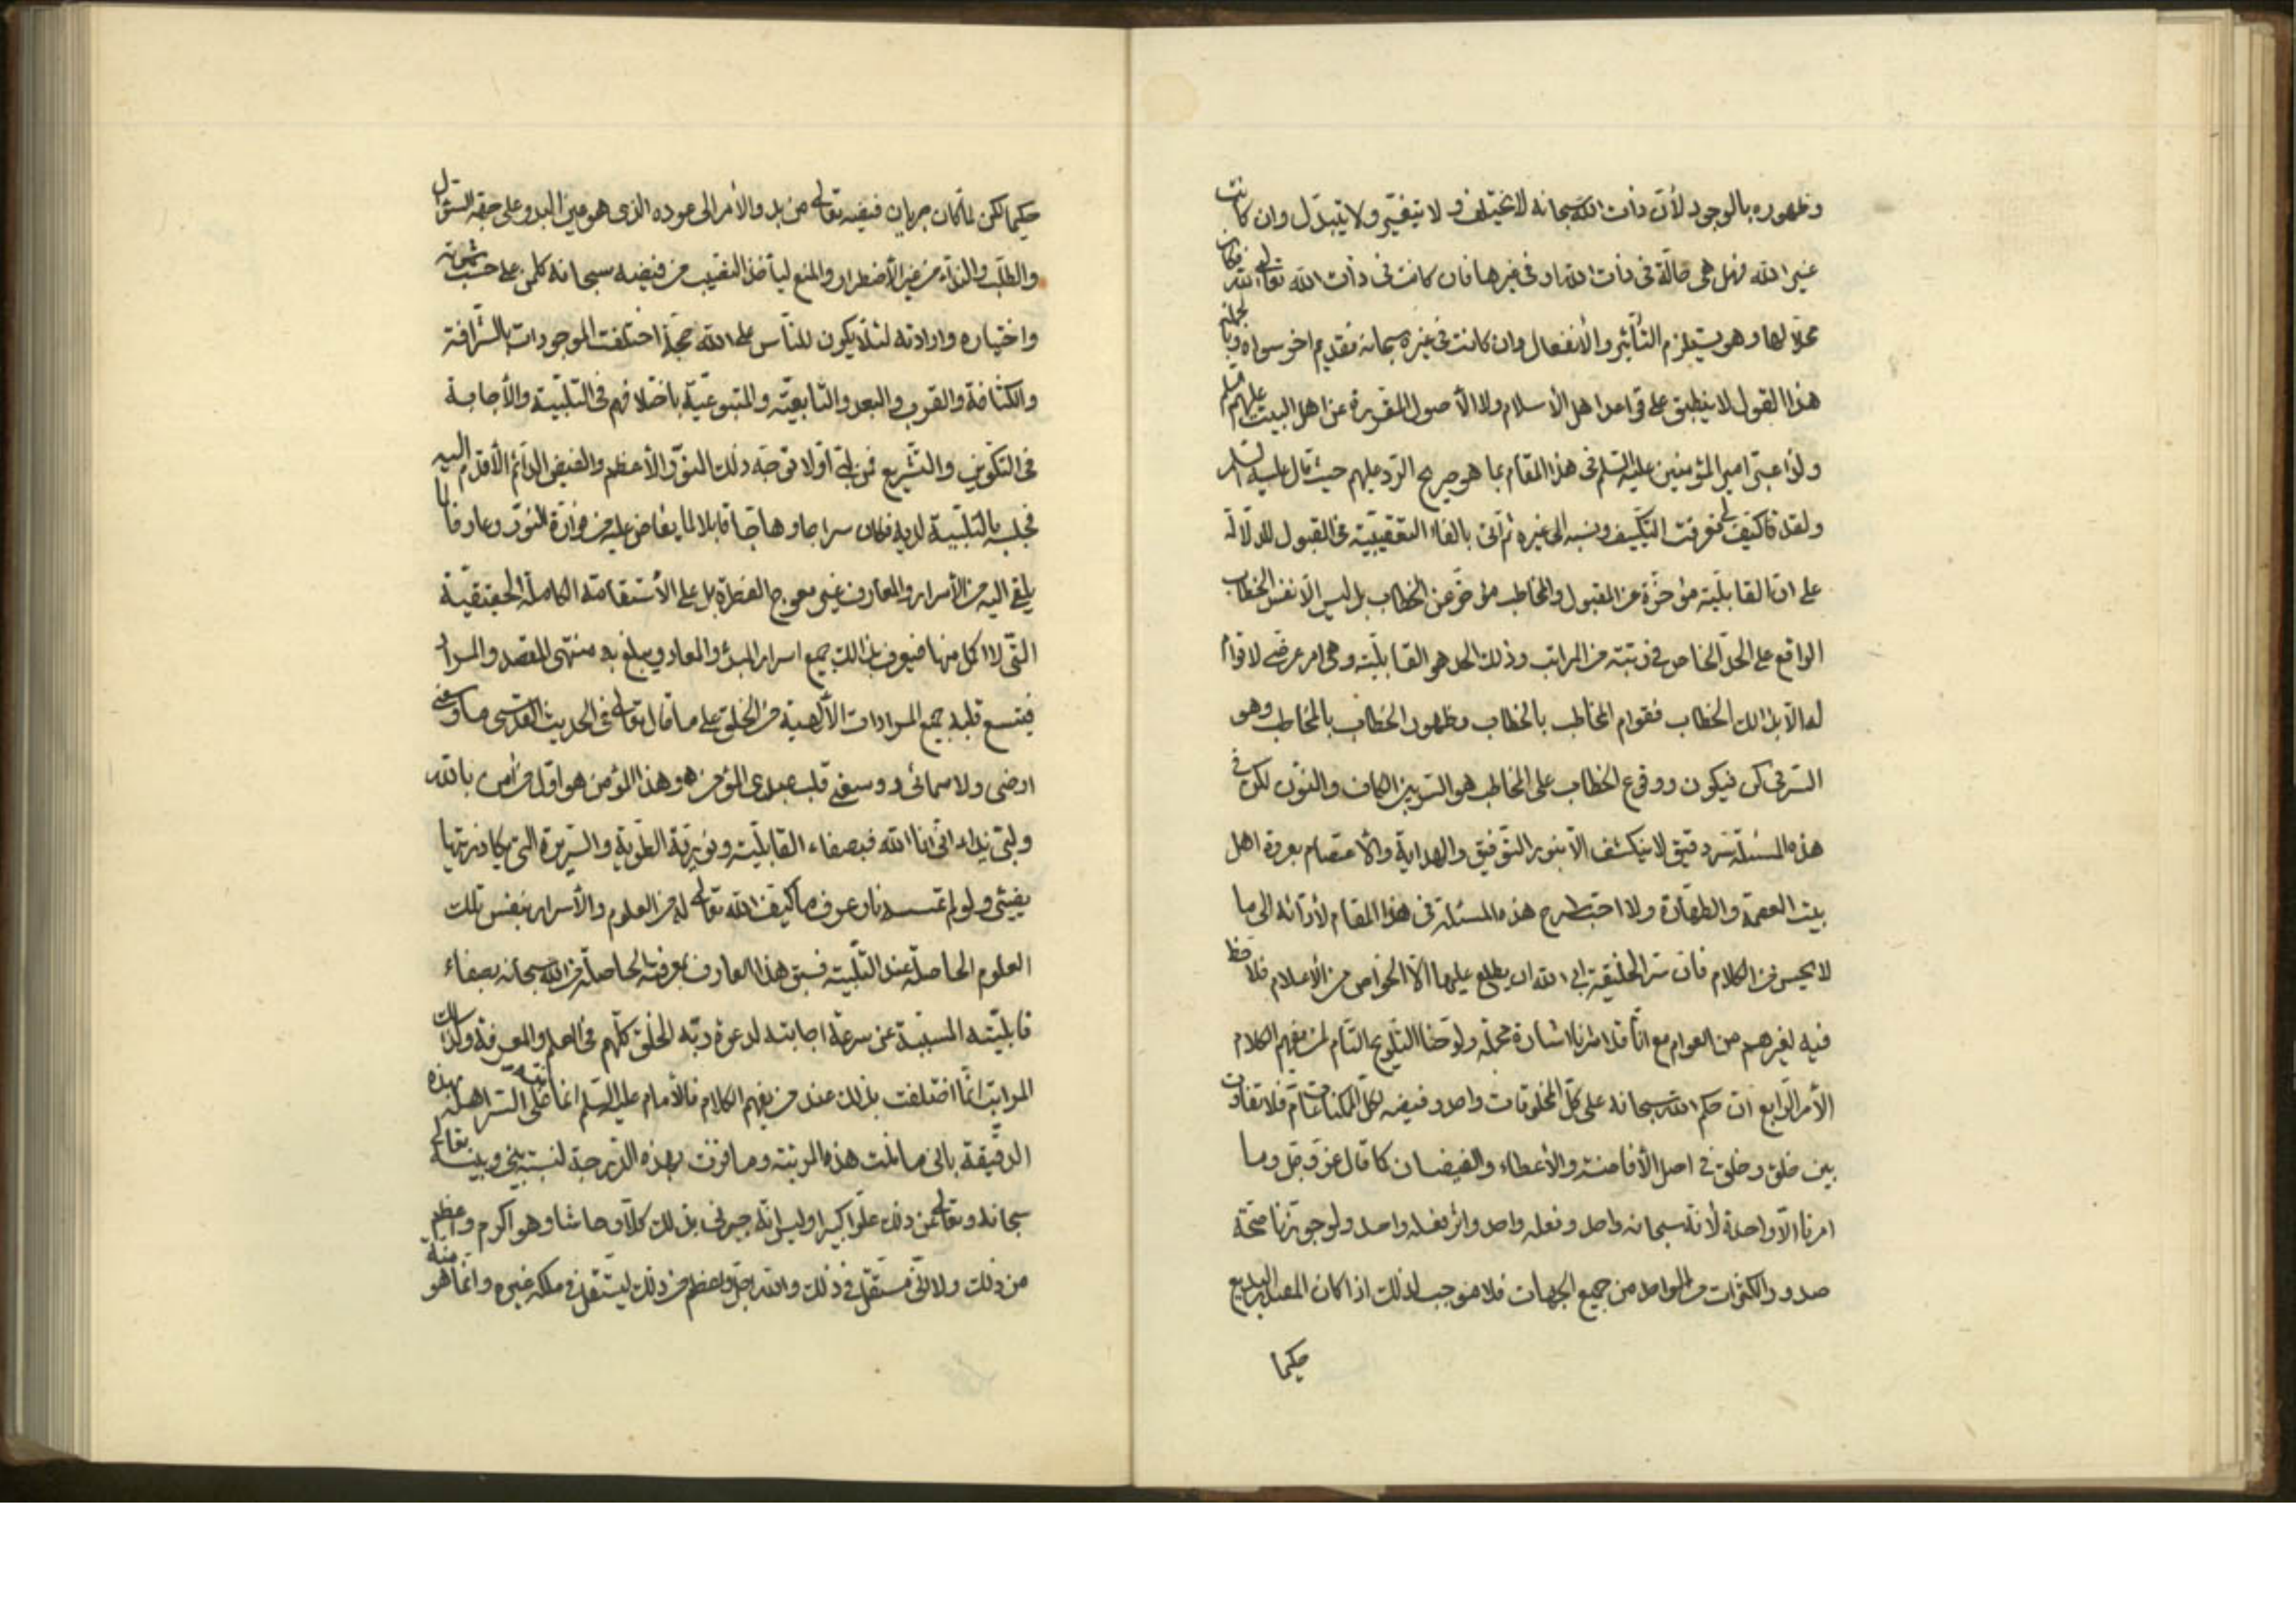 وظهوره بالوجود لأن ذات الله سبحانه لا يختلف ولا يتغير ولا يتبدل وان كانت
غير الله فهل هى حالة فى ذات الله او فى غيرها فان كانت فى ذات الله تعالى فكان الله
محلا لها وهو يستلزم التأثير والأنفعال وان كانت فى غيره سبحانه فقديم اخر سواه وبالجملة
هذا القول لا ينطبق على قواعد اهل الأسلام ولا الأصول المقررة عن اهل البيت عليهم السلم
ولذا عبر امير المؤمنين عليه السلم فى هذا المقام بما هو صريح الرد عليهم حيث قال عليه السلم
ولقد فاكتف فعرفت التكييف ونسبه الى غيره ثم اتى بالفاء التعقيبية فى القبول للدلالة
على ان القابلية مؤخرة عن المقبول والمخاطب مؤخر عن الخطاب بل ليس الا نفس الخطاب
الواقع على الحد الخاص فى رتبته من المراتب وذلك الحد هو القابلية وهى امر عرضى لا قوام
له الا بذالك الخطاب فقوام المخاطب بالخطاب وظهور الخطاب بالمخاطب وهو
السر فى كن فيكون ووقوع الخطاب على المخاطب هو السر بين الكاف والنون لكن فى
هذه المسئلة سر دقيق لا ينكشف الا بنور التوفيق والهداية والأعتصام بعروة اهل
بيت العصمة والطهارة ولا احب طرح هذه المسئلة فى هذا المقام لأدائه الى ما
لا يحسن من الكلام فان سر الخليقة ابى الله ان يطلع عليها الا الخواص من الأعلام فلا حظ
فيه لغيرهم من العوام مع انا قد اشرنا اشارة مجملة ولوحنا التلويح التام لمن يفهم الكلام
الأمر الرابع ان حكم الله سبحانه على كل المخلوقات واحد وفيضه لكل الممكنات تام فلا تفاوت
بين خلق وخلق فى اصل الأفاضة والأعطاء والفيضان كما قال عز وجل وما
امرنا الا واحدة لأنه سبحانه واحد وفعله واحد واثر فعله واحد ولو جوزنا صحة
صدور الكثرات من الواحد من جميع الجهات فلا موجب لذلك اذا كان المفيد البديع
حكيما
حكيما لكن لما كان جريان فيضه تعالى من بدو الأمر الى عوده الذى هو عين البدو على جهة السؤال
والطلب والنداء من غير الأضطرار والمنع ليأخذ النصيب من فيضه سبحانه كل على حسب شهوته
واختياره وارادته لئلا يكون للناس على الله حجة اختلفت الموجودات بالشرافة
والكثافة والقرب والبعد والتابعية والمتبوعية باختلافهم فى التلبية والأجابة
فى التكوين والتشريع فمن لبى اولا توجه ذلك النور الأعظم والفيض الدائم الأقدم اليه
فجلبه بالتلبية لديه فكان سراجا وهاجا قابلا لما يفاض عليه من فوارة النور وعارفا لما
يلقى اليه من الأسرار والمعارف غير معوج الفطرة بل على الأستقامة الكاملة الحقيقية
التى لا اكمل منها فيعرف بذالك جميع اسرار المبدء والمعاد ويبلغ به منتهى المقصد والمراد
فيتسع قلبه جميع المرادات الألهية من الخلق على ما قال تعالى فى الحديث القدسى ما وسعنى
ارضى ولا سمائى ووسعنى قلب عبدى المؤمن وهذا المؤمن هو اول من أمن بالله
ولبى نداء انى انا الله فبصفاء القابلية ونورية الطوية والسريرة التى يكاد زيتها
يضيئى ولو لم تمسسه نار عرف ما كيف الله تعالى له من العلوم والأسرار بنفس تلك
العلوم الحاصلة عند التلبية فسبق هذا العارف بمعرفته الحاصلة من الله سبحانه بصفاء
قابليته المسببة عن سرعة اجابته لدعوة ربه الخلق كلهم فى العلم والمعرفة وكذالك
المراتب انما اختلفت بذلك عند من يفهم الكلام فالأمام عليه السلم انما نبه على السر اهله بهذه
الدقيقة بانى ما نلت هذه المرتبة وما فزت بهذه الدرجة لنسبة بينى وبينه تعالى
سبحانه وتعالى عن ذلك علوا كبيرا وليس انه جبرنى بذلك كلا وحاشا وهو اكرم واعظم
من ذلك ولا انى مستقل فى ذلك والله اجل واعظم من ذلك ليستقل فى ملكه غيره وانما هو منه